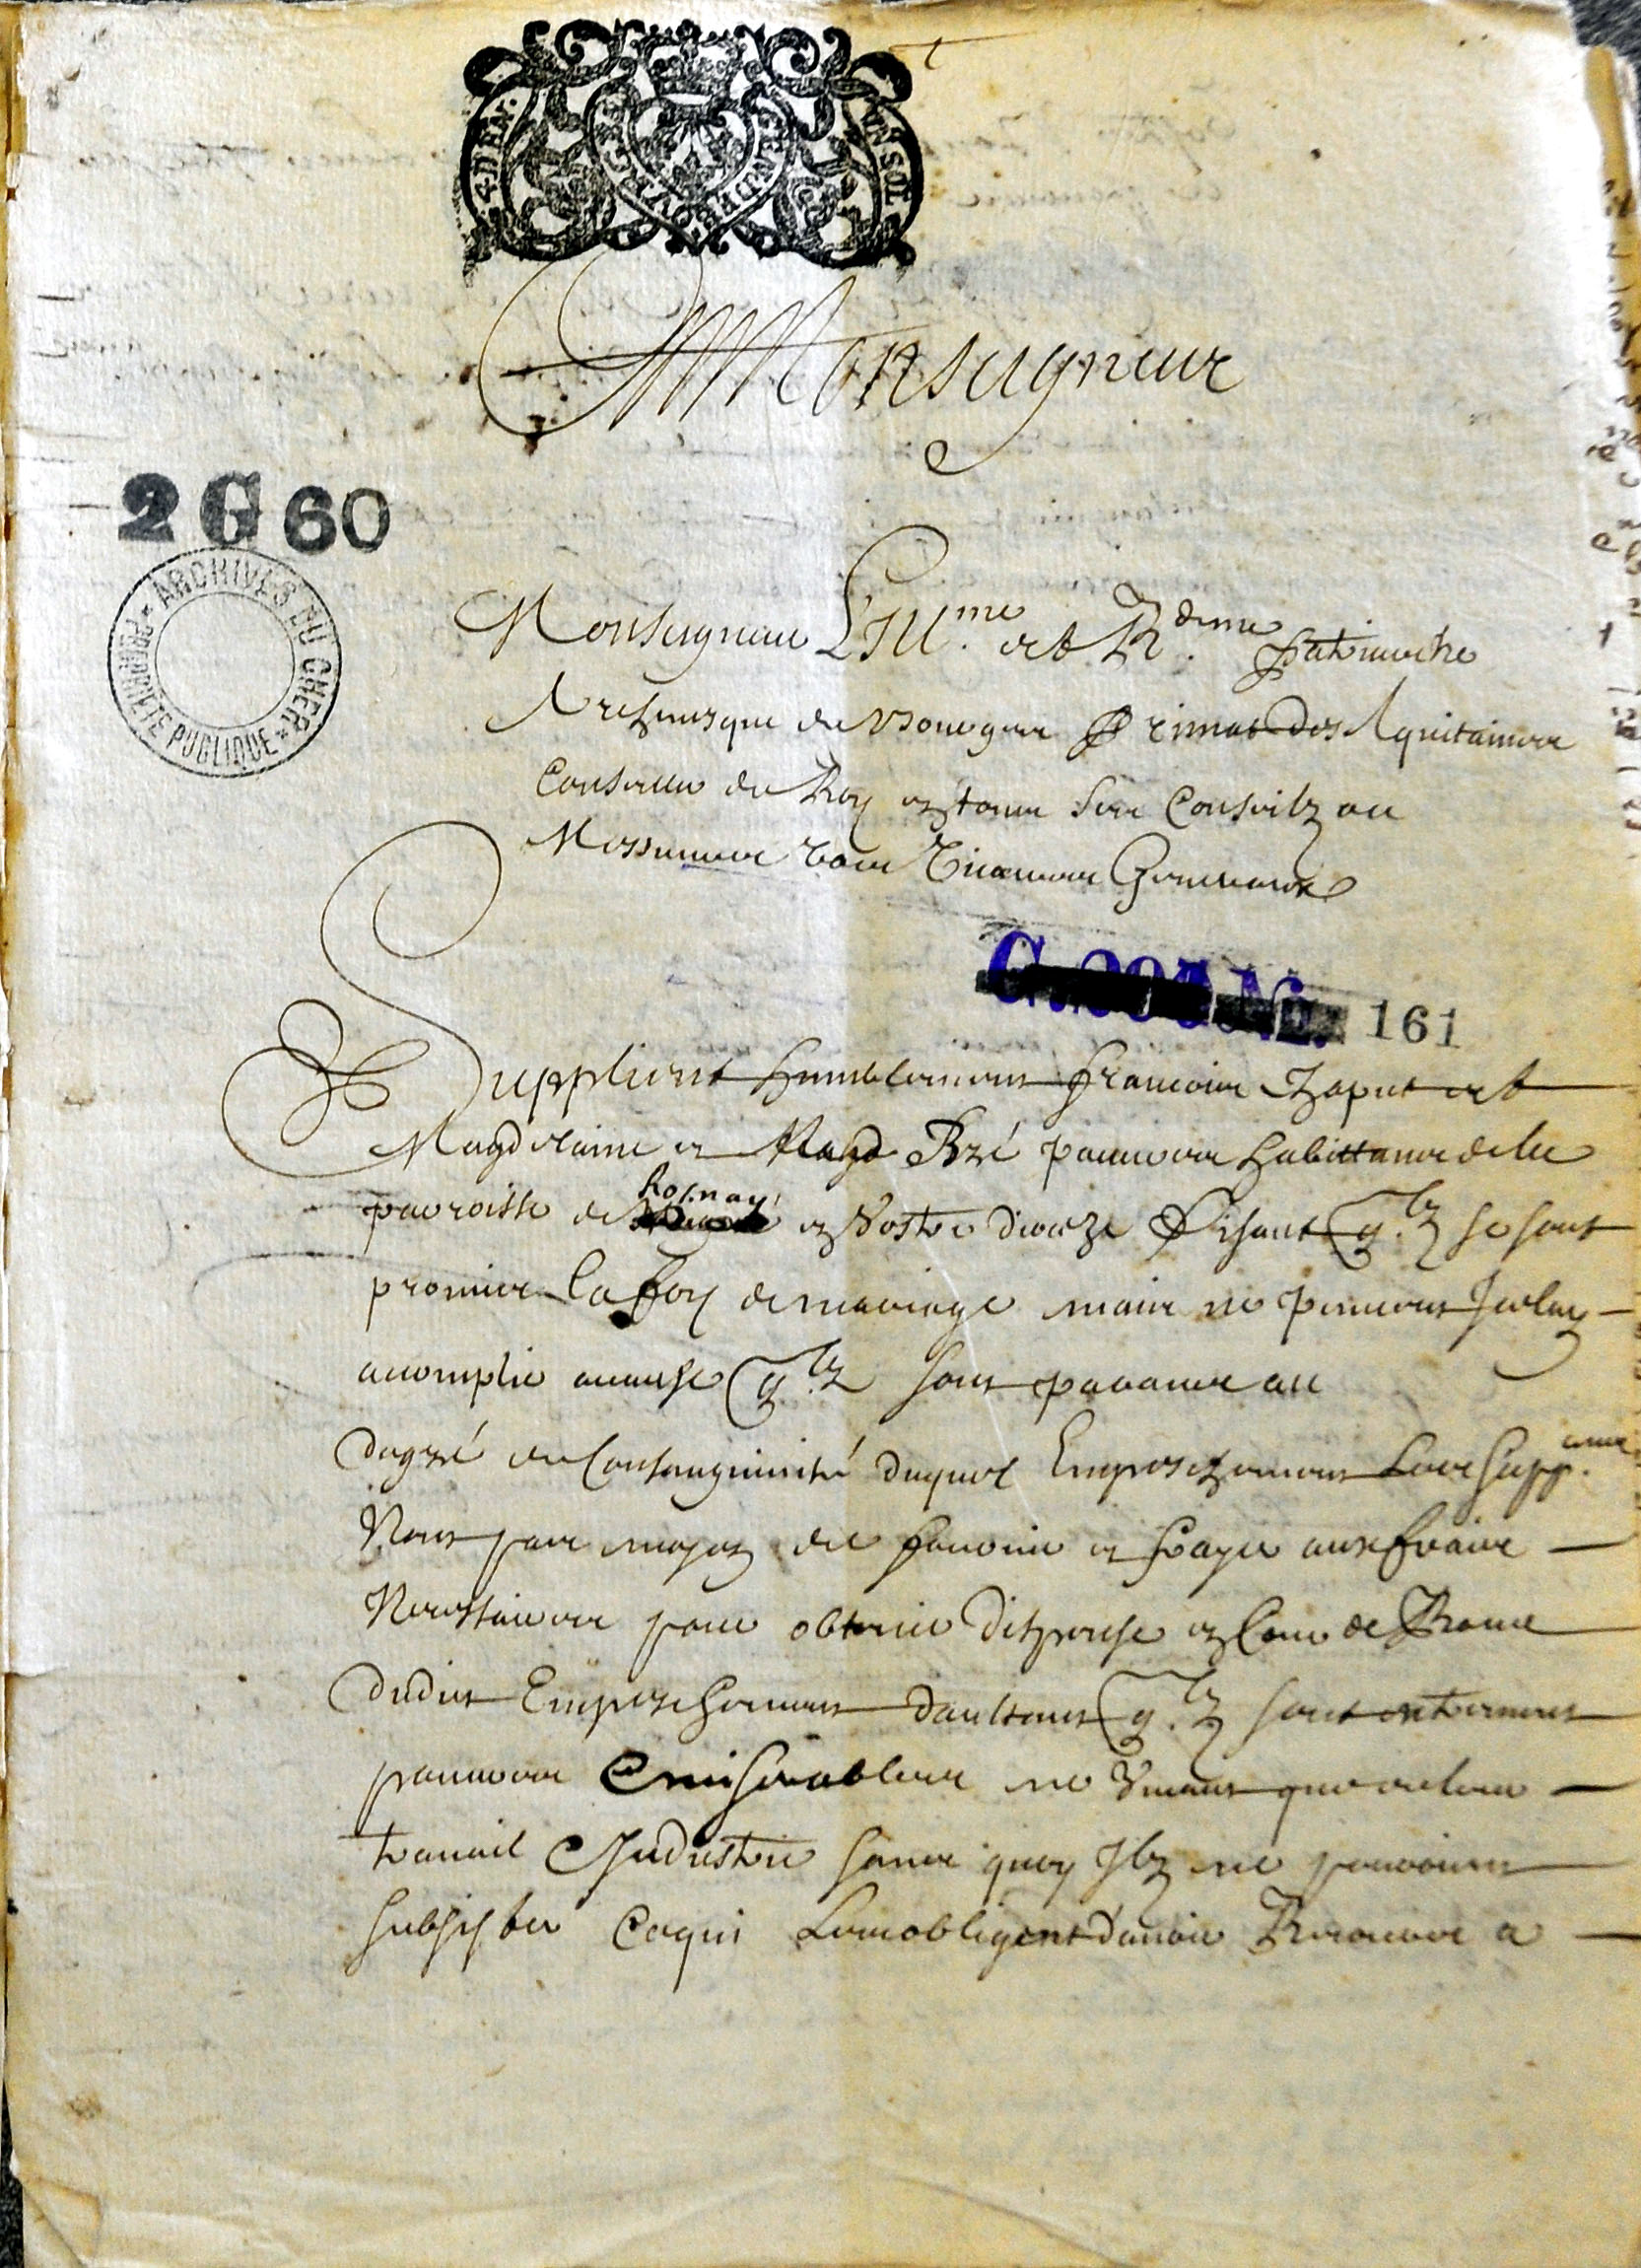 4 DEN.
UN SOL
Monseigneur
2 G 60
ARCHIVES DU CHER
PROPRIÉTÉ PUBLIQUE
Monseigneur L'Ill.me et R.deme Patriarche
Archeuesque de Bourges Primat des Aquitaines
Conseiller du Roy en tous ses Conseilz ou
Messieurs vos Vicaires Generaux
161
Supplient humblement francois Chaput et
Magdelaine Bzé pauures habittans de la
parroisse de Rosnay en Vostre dioceze Disant q.lz se sont
promis la foy de mariage mais ne peuuent Iceluy
acomplir acause q.lz sont parans au
degré de Consanguinité duquel Empeschement Les Supp.ans
Nont pas moyen de fournir et frayer aux fraiz
Necessaires pour obtenir dispense en Cour de Rome
dudit Empeschement daultant q.lz sont
pauures & miserables ne Viuant que de leur
trauail & Industrie sans quoy Ilz ne pouroient
subsister Ce qui Les obligent dauoir Recours a